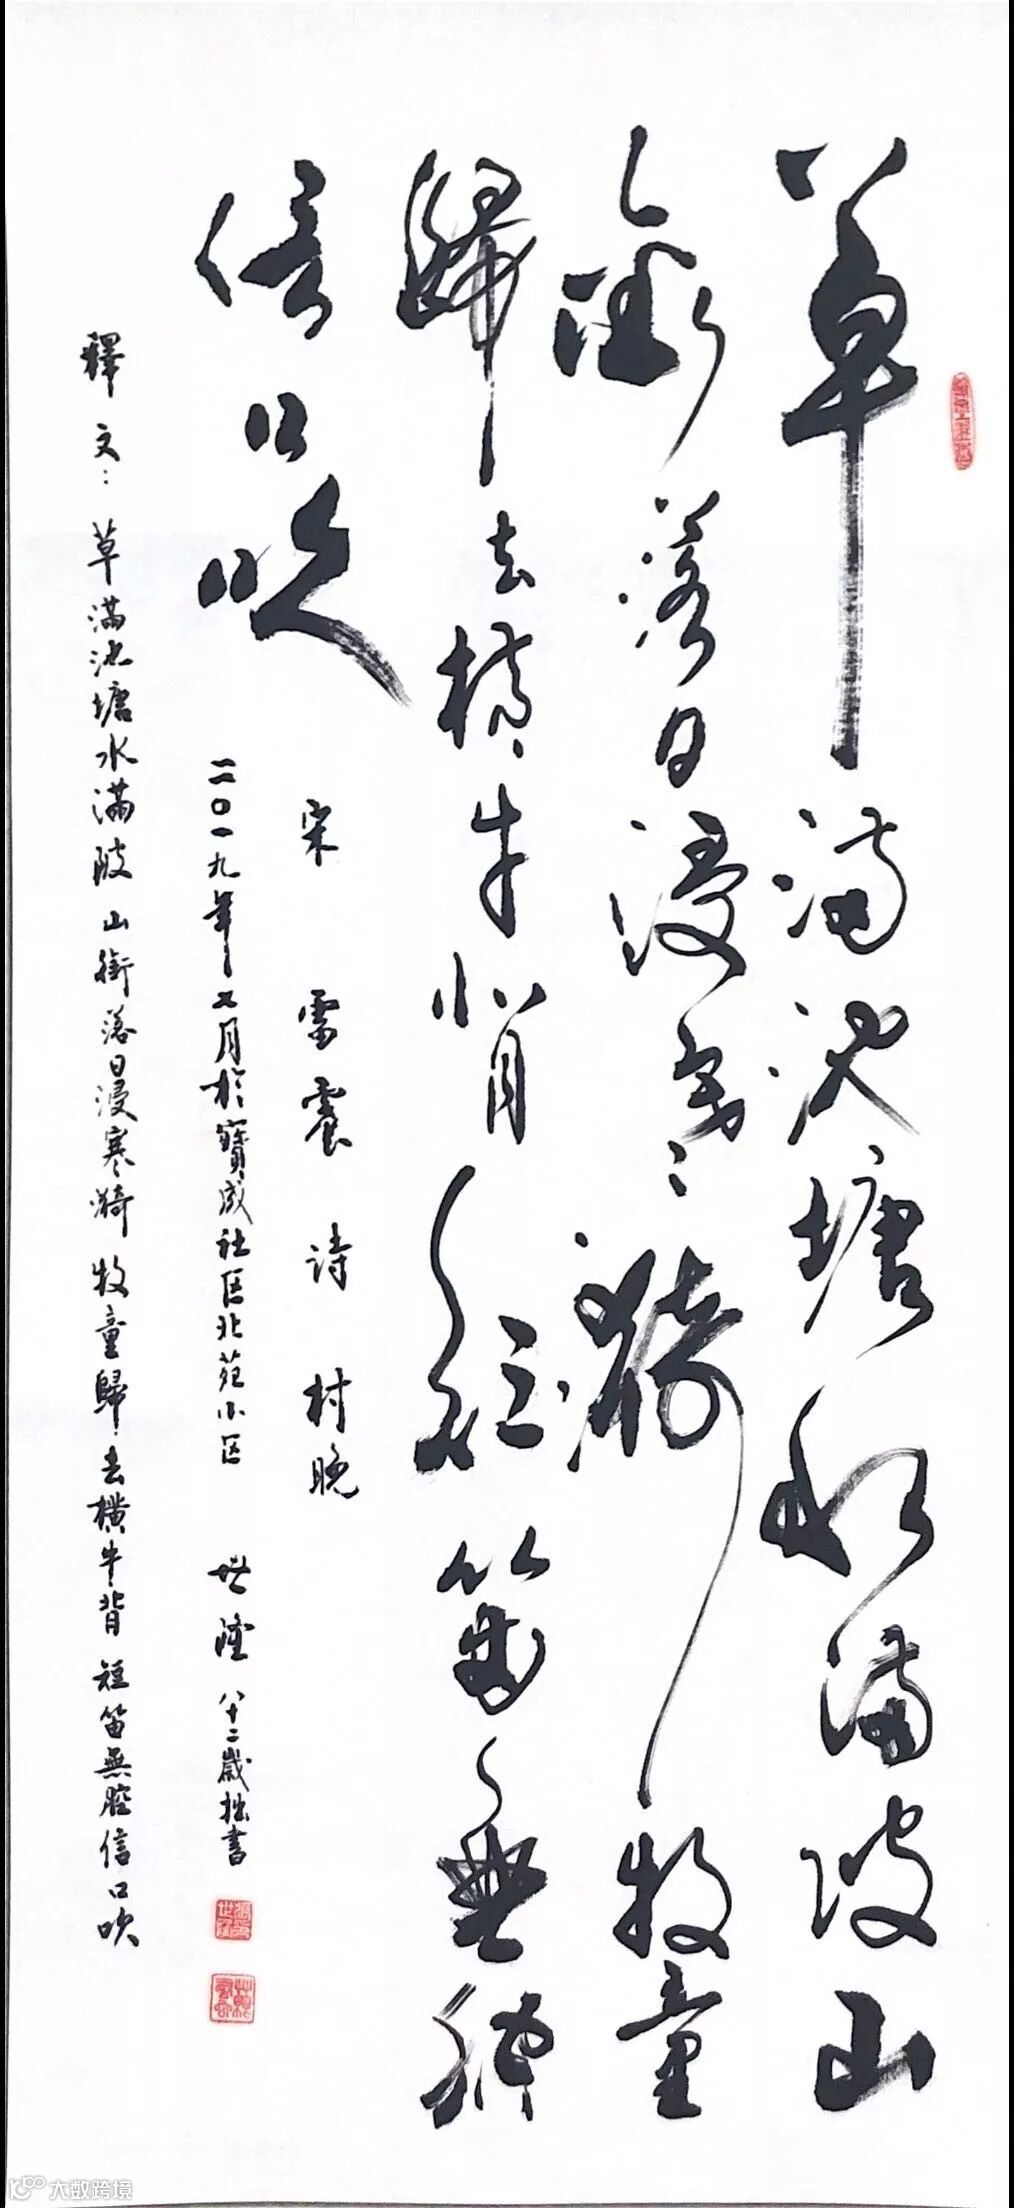 草滿池塘水滿陂山
銜落日浸寒漪牧童
歸去橫牛背短笛無腔
信口吹
宋 雷震 詩 村晚
二〇一九年七月於寶成社区北苑小区 世隆 八十二歲拙書
釋文：草滿池塘水滿陂 山銜落日浸寒漪 牧童歸去橫牛背 短笛無腔信口吹
大数跨境